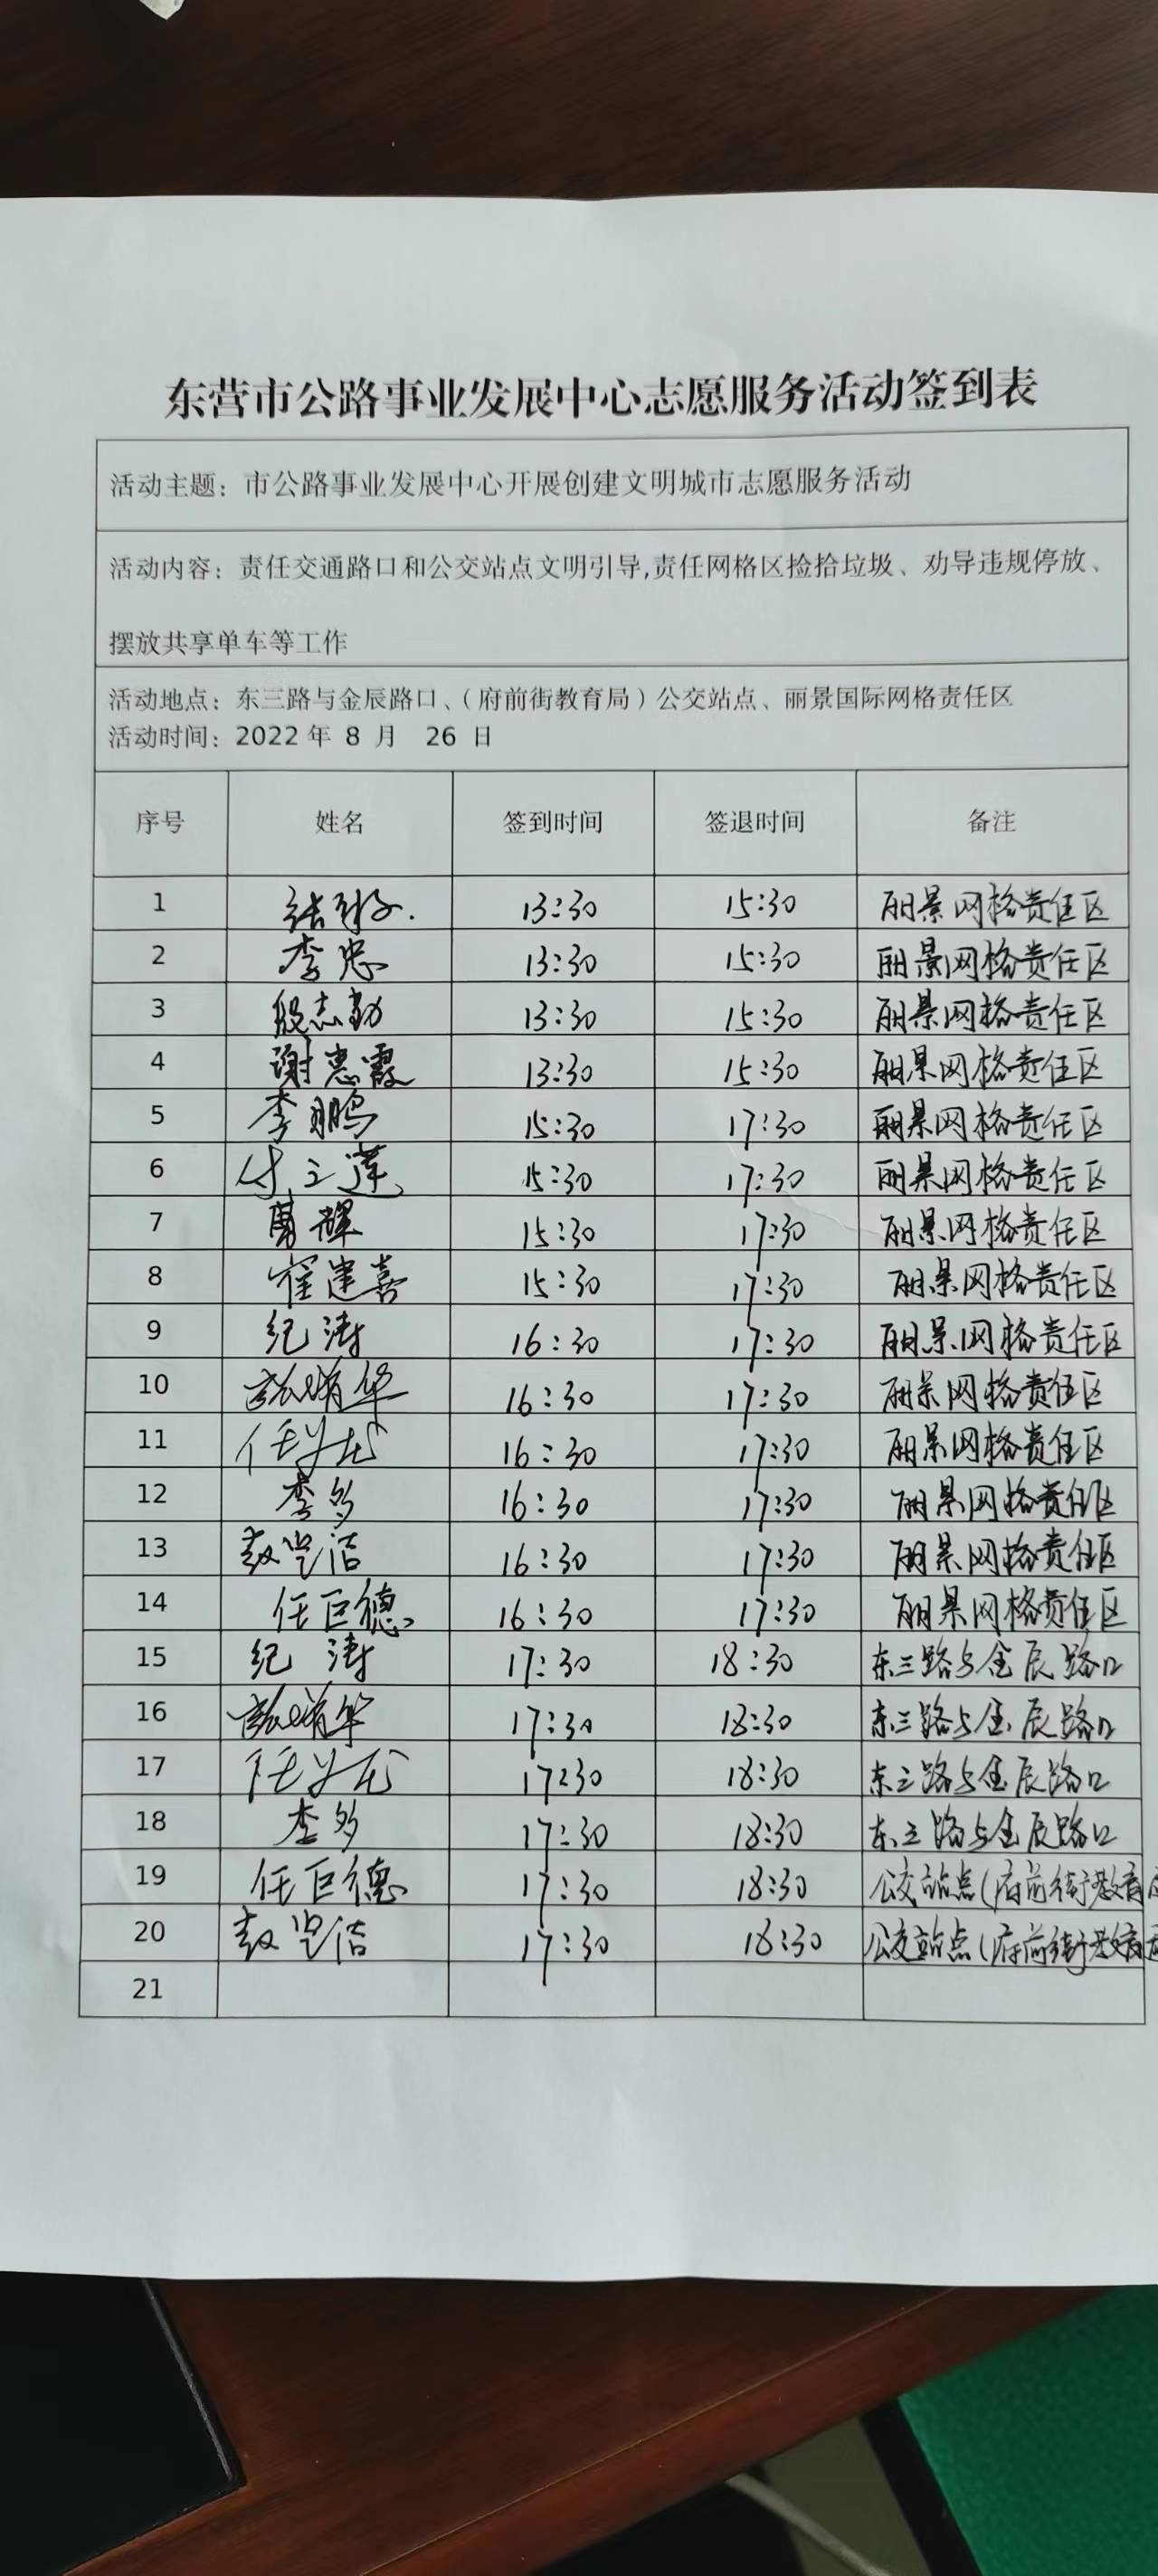 东营市公路事业发展中心志愿服务活动签到表
活动主题：市公路事业发展中心开展创建文明城市志愿服务活动
活动内容：责任交通路口和公交站点文明引导,责任网格区捡拾垃圾、劝导违规停放、
摆放共享单车等工作
活动地点：东三路与金辰路口、（府前街教育局）公交站点、丽景国际网格责任区
活动时间：2022年 8 月 26 日
序号 姓名 签到时间 签退时间 备注
1 13:30 15:30 丽景网格责任区
2 李忠 13:30 15:30 丽景网格责任区
3 殷志勤 13:30 15:30 丽景网格责任区
4 谢惠霞 13:30 15:30 丽景网格责任区
5 李鹏 15:30 17:30 丽景网格责任区
6 付立莲 15:30 17:30 丽景网格责任区
7 15:30 17:30 丽景网格责任区
8 崔建喜 15:30 17:30 丽景网格责任区
9 纪涛 16:30 17:30 丽景网格责任区
10 16:30 17:30 丽景网格责任区
11 16:30 17:30 丽景网格责任区
12 李多 16:30 17:30 丽景网格责任区
13 16:30 17:30 丽景网格责任区
14 任巨德 16:30 17:30 丽景网格责任区
15 纪涛 17:30 18:30 东三路与金辰路口
16 17:30 18:30 东三路与金辰路口
17 17:30 18:30 东三路与金辰路口
18 李多 17:30 18:30 东三路与金辰路口
19 任巨德 17:30 18:30 公交站点(府前街教育
20 17:30 18:30 公交站点(府前街教育
21